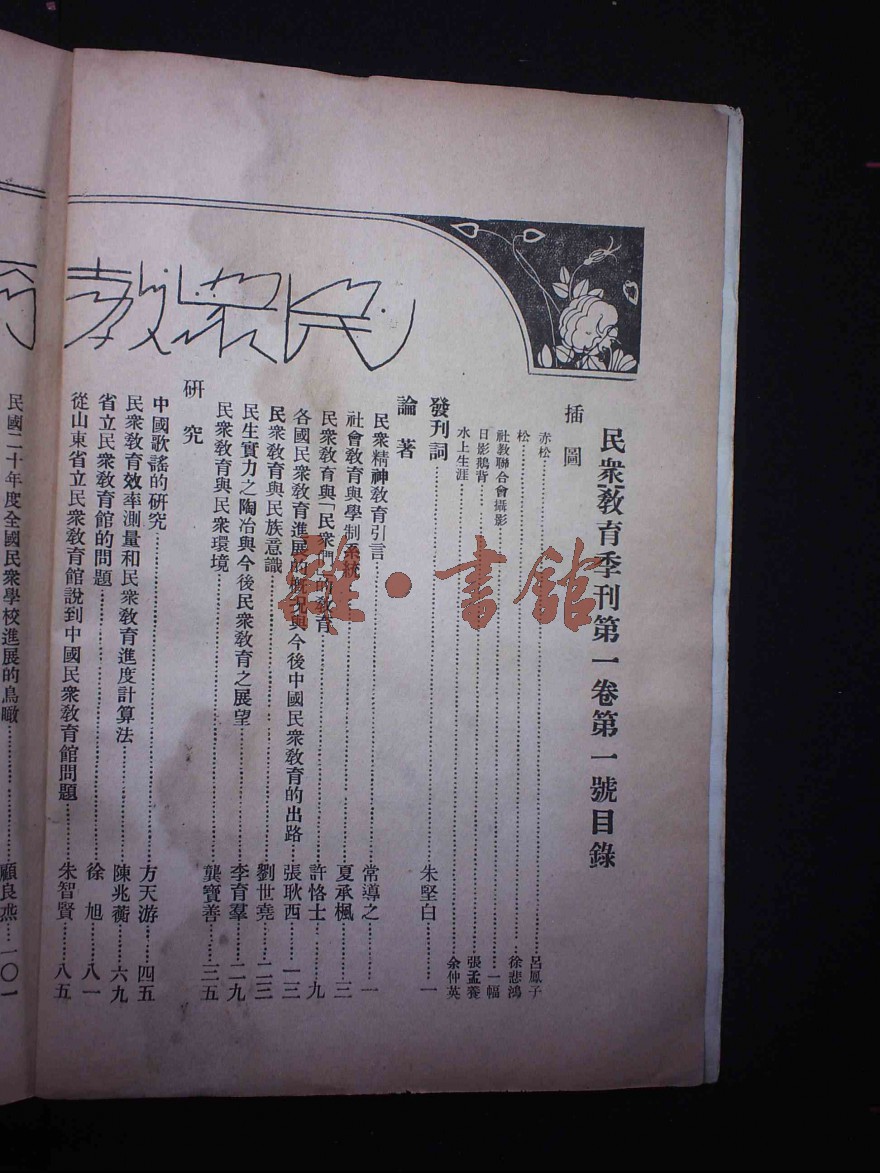 民衆教育
民衆教育季刊第一卷第一號目錄
插圖
赤松……呂鳳子
松……徐悲鴻
社教聯合會攝影……一幅
日影鵝背……張孟養
水上生涯……余仲英
發刊詞……朱堅白……一
論著
民衆精神教育引言……常導之……一
社會教育與學制系統……夏承楓……三
民衆教育與「民衆們」的教育……許恪士……九
各國民衆教育進展的概況與今後中國民衆教育的出路……張耿西……一三
民衆教育與民族意識……劉世堯……二三
民生實力之陶冶與今後民衆教育之展望……李育羣……二九
民衆教育與民衆環境……龔寶善……三五
研究
中國歌謠的研究……方天游……四五
民衆教育效率測量和民衆教育進度計算法……陳兆蘅……六九
省立民衆教育館的問題……徐旭……八一
從山東省立民衆教育館說到中國民衆教育館問題……朱智賢……八五
民國二十年度全國民衆學校進展的鳥瞰……顧良燕……一〇一
雜·書館